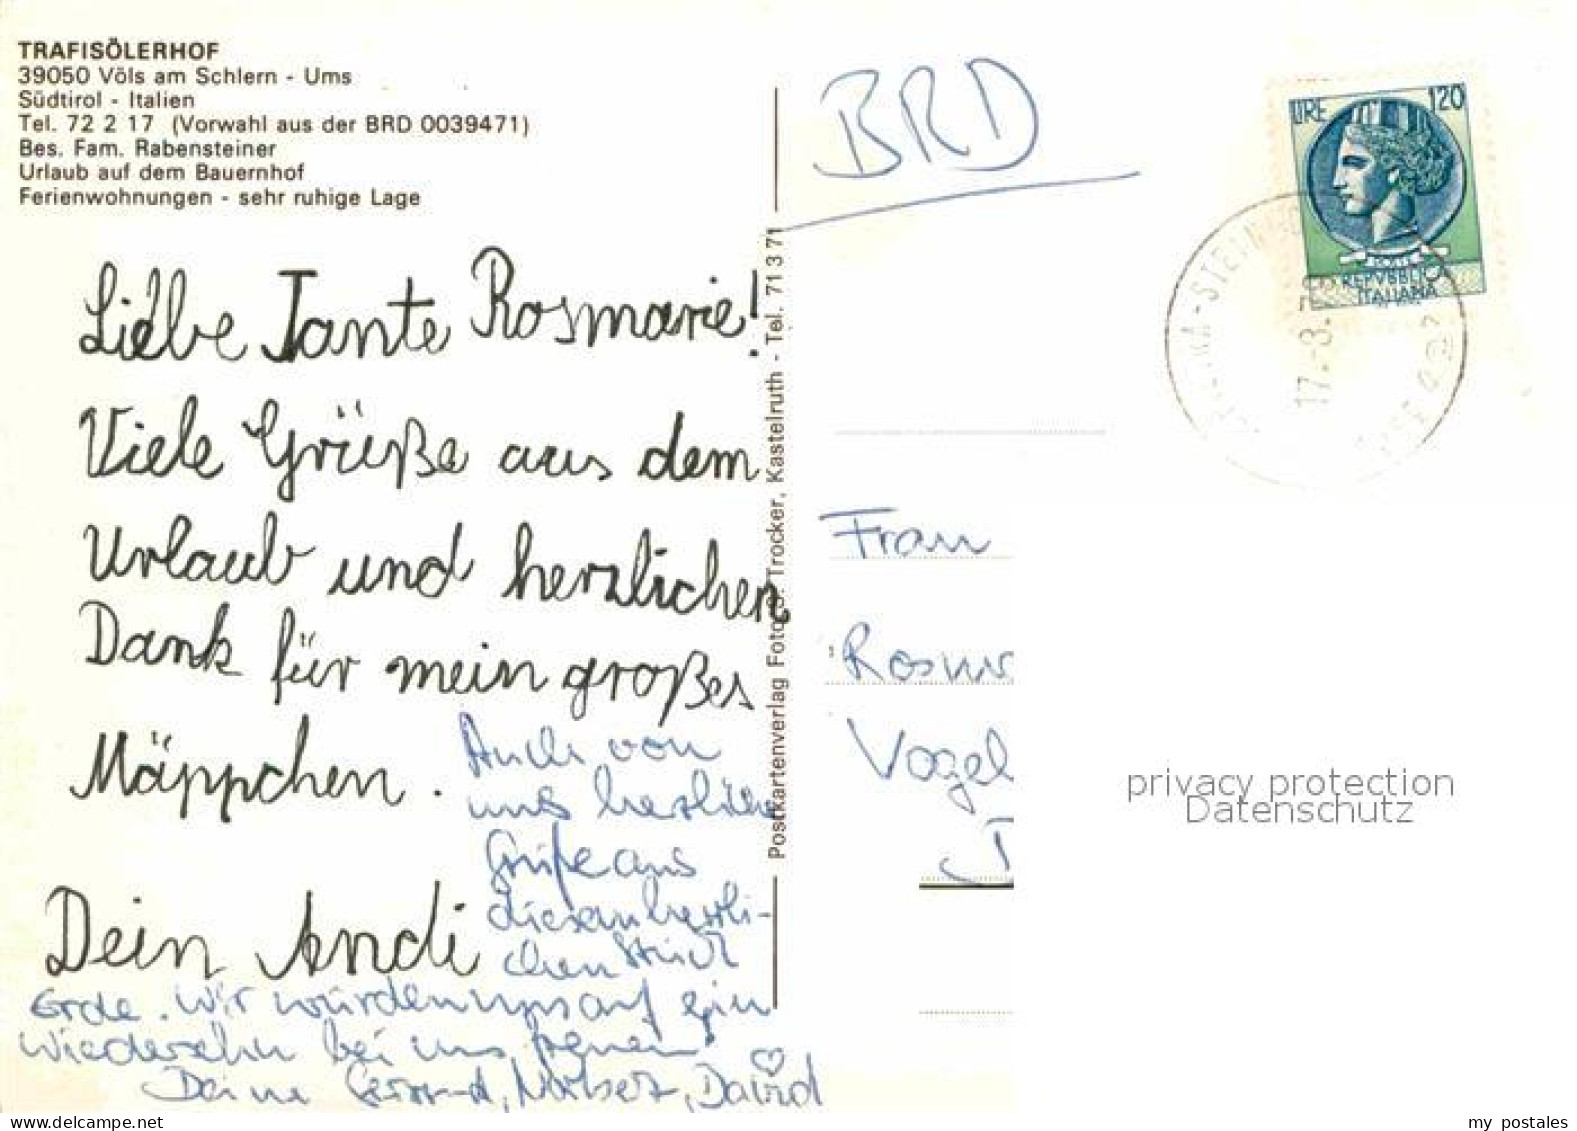 TRAFISÖLERHOF
39050 Völs am Schlern - Ums
Südtirol - Italien
Tel. 72 2 17 (Vorwahl aus der BRD 0039471)
Bes. Fam. Rabensteiner
Urlaub auf dem Bauernhof
Ferienwohnungen - sehr ruhige Lage
Liebe Tante Rosmarie!
Viele Grüße aus dem
Urlaub und herzlichen
Dank für mein großes
Mäppchen.
Dein Andi
Auch von
uns herzliche
Grüße aus
diesem herrli-
chen Stück
Erde. Wir würden uns auf ein
Wiedersehn bei uns freuen
Deine Norbert, David
Postkartenverlag Foto G. Trocker, Kastelruth - Tel. 71 3 71
BRD
LIRE 120
POSTE
REPVBBLICA
ITALIANA
17.-3.
Frau
Rosmar
Vogel
privacy protection
Datenschutz
my postales
www.delcampe.net